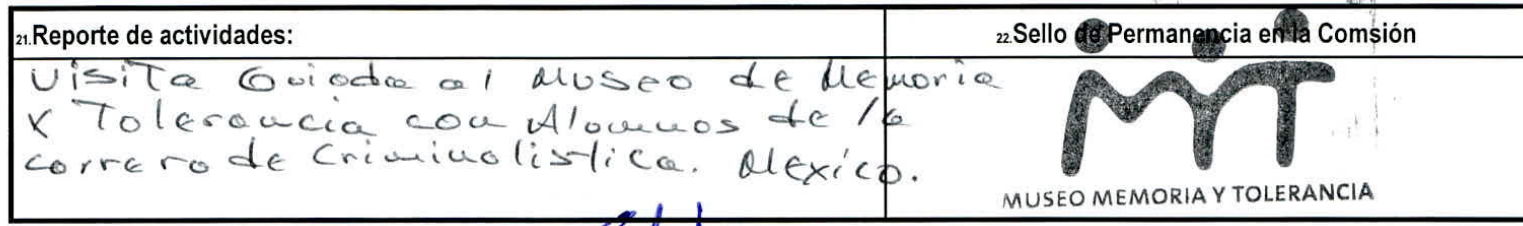 21.Reporte de actividades:
22.Sello de Permanencia en la Comsión
Visita Guiada al Museo de Memoria
y Tolerancia con Alumnos de la
carrera de Criminalistica. Mexico.
MYT
MUSEO MEMORIA Y TOLERANCIA